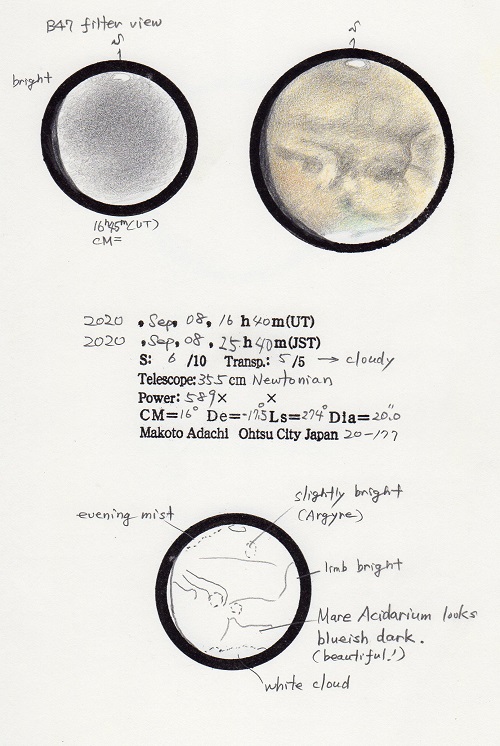 B47 filter view
S
S
bright
16h45m(UT)
CM=
2020 , Sep, 08, 16 h 40m(UT)
2020 , Sep, 08, 25 h 40m(JST)
S: 6 /10 Transp.: 5 /5 → cloudy
Telescope: 355 cm Newtonian
Power: 589× ×
CM=16° De=-17.5° Ls=274° Dia=20".0
Makoto Adachi Ohtsu City Japan 20-177
slightly bright
(Argyre)
evening mist
limb bright
Mare Acidarium looks
blueish dark.
(beautiful!)
white cloud